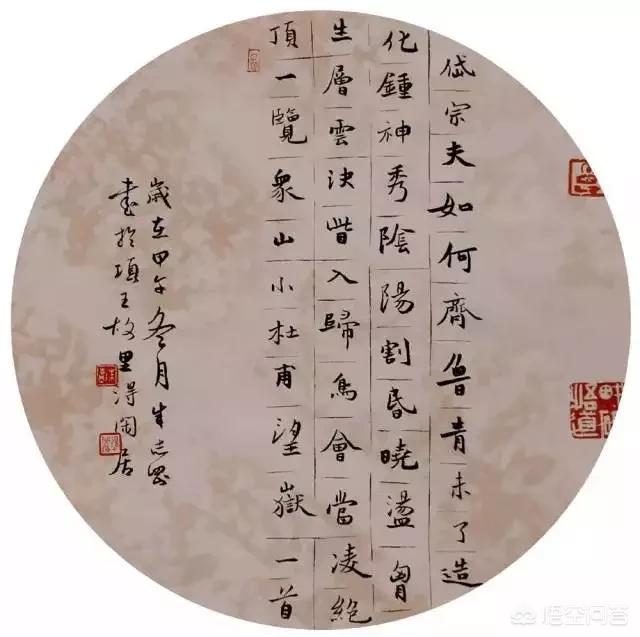 岱宗夫如何齊魯青未了造
化鍾神秀陰陽割昏曉盪胷
生層雲決眥入歸鳥會當凌絕
頂一覽衆山小杜甫望嶽一首
歲在甲午冬月
書於項王故里淂閑居
悟空问答